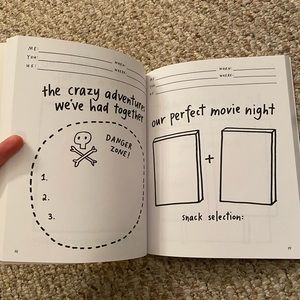 ME:
YOU:
US:
WHEN:
WHERE:
the crazy adventures
we've had together
DANGER
ZONE!
1.
2.
3.
WHEN:
WHERE:
our perfect movie night
+
snack selection: